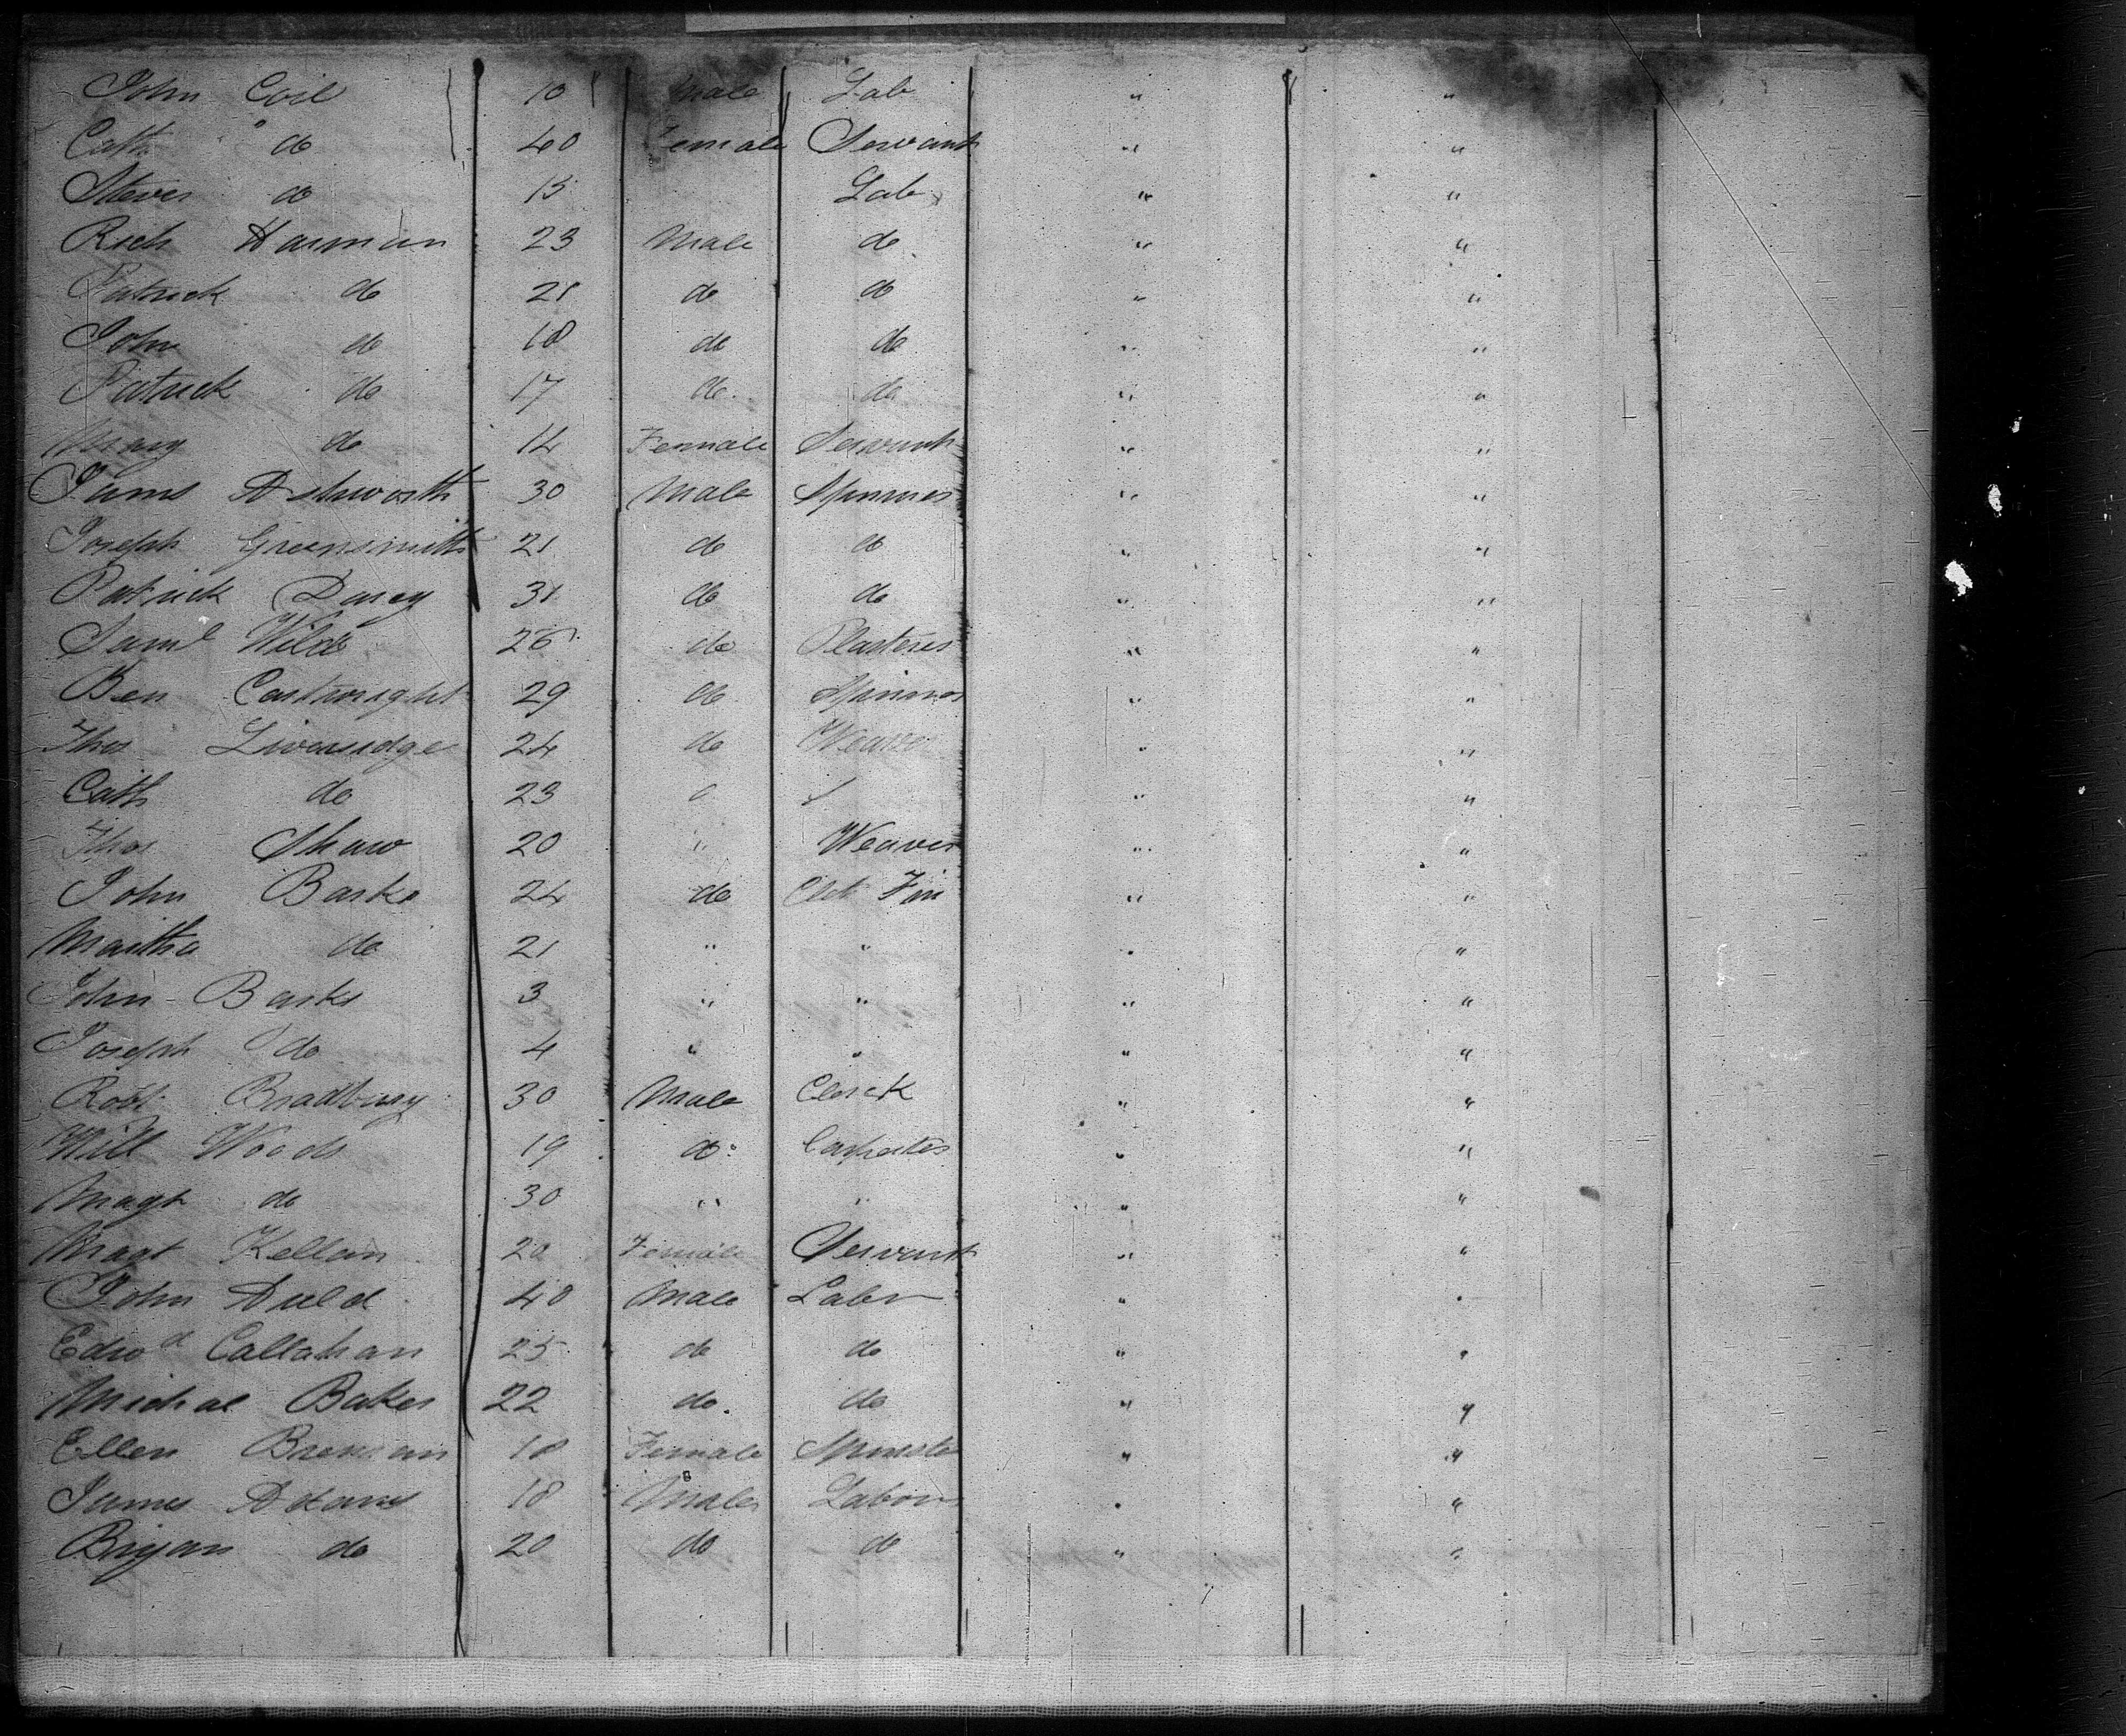 John Coil 10 Male Lab " "
Cath do 40 Female Servant " "
Steven do 15 Lab " "
Rich Harman 23 Male do " "
Patrick do 21 do do " "
John do 18 do do " "
Patrick do 17 do do " "
Mary do 14 Female Servant " "
James Ashworth 30 Male Spinner " "
Joseph Greensmith 21 do do " "
Patrick Darcy 31 do do " "
Saml Wild 26 do Plasterer " "
Ben Cartwright 29 do Spinner " "
Thos Liversidge 24 do Weaver " "
Cath do 23 " "
Thos Shaw 20 " Weaver " "
John Barke 24 do Clot Fin " "
Martha do 21 " " " "
John Barke 3 " " " "
Joseph do 4 " " " "
Robt Bradbury 30 Male Clerk " "
Will Woods 19 do Carpenter " "
Magt do 30 " " " "
Magt Kellan 20 Female Servant " "
John Auld 40 Male Labr " "
Edwd Callahan 25 do do " "
Michael Baker 22 do do " "
Ellen Brennan 18 Female Spinster " "
James Adams 18 Male Labour " "
Bryan do 20 do do " "